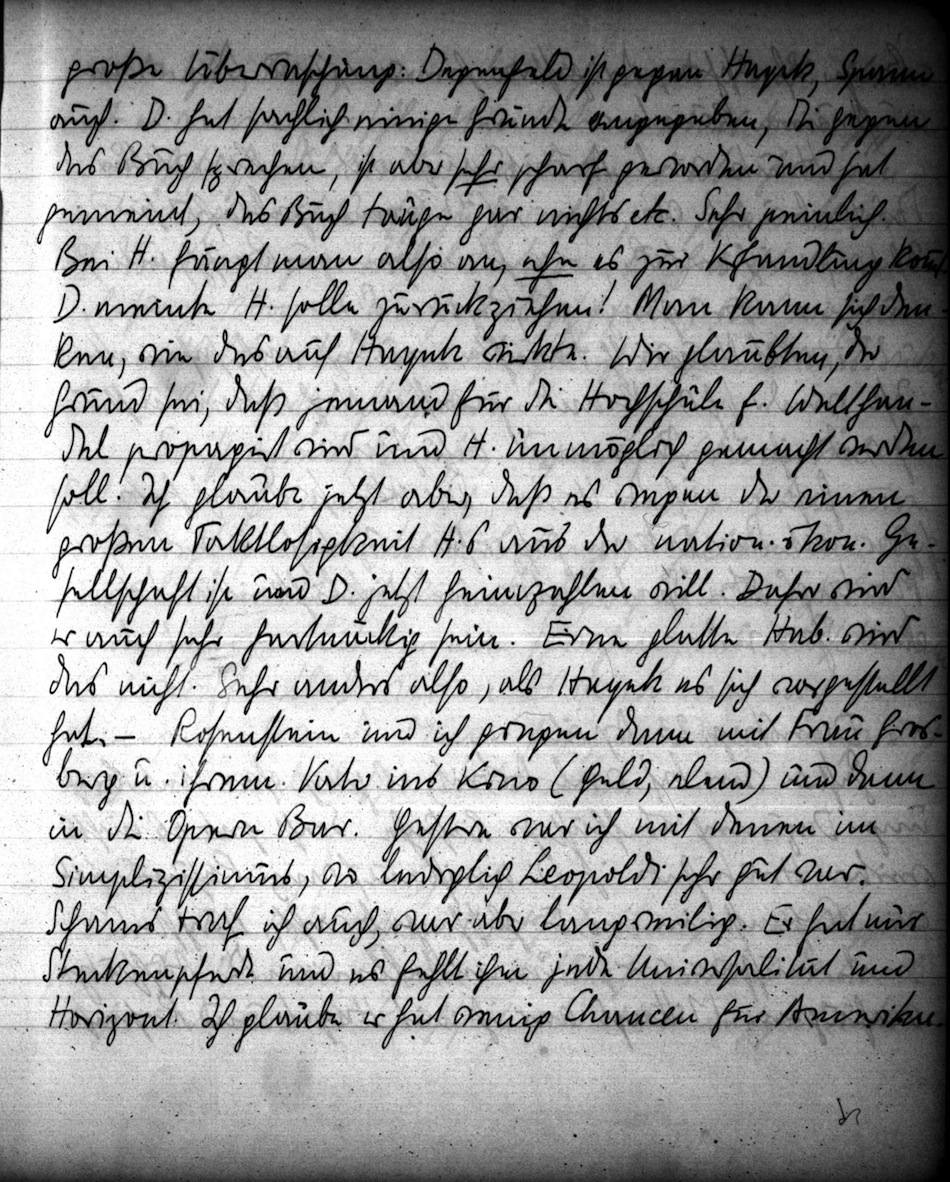 große Überraschung: Degenfeld ist gegen Hayek, Spann
auch. D. hat sachlich einige Gründe angegeben, die gegen
das Buch sprechen, ist aber sehr scharf geworden und hat
gemeint, das Buch tauge gar nichts etc. Sehr peinlich.
Bei H. fängt man also an, ehe es zur Verhandlung kommt
D. meinte H. solle zurückziehen! Man kann sich den-
ken, wie das auf Hayek wirkte. Wir glaubten, der
Grund sei, daß jemand für die Hochschule f. Welthan-
del propagiert wird und H. unmöglich gemacht werden
soll. Ich glaube jetzt aber, daß es wegen der einen
großen Taktlosigkeit H.s aus der nation. ökon. Ge-
sellschaft ist und D. jetzt heimzahlen will. Daher wird
er auch sehr hartnäckig sein. Eine glatte Hab. wird
das nicht. Sehr anders also, als Hayek es sich vorgestellt
hat. — Rosenstein und ich gingen dann mit Frau Gros-
berg u. ihrem Vater ins Kino (Geld, elend) und dann
in die Opern Bar. Gestern war ich mit denen im
Simplizissimus, wo lediglich Leopoldi sehr gut war.
Schams traf ich auch, war aber langweilig. Er hat nur
Steckenpferde und es fehlt ihm jede Universalität und
Horizont. Ich glaube er hat wenig Chancen für Amerika